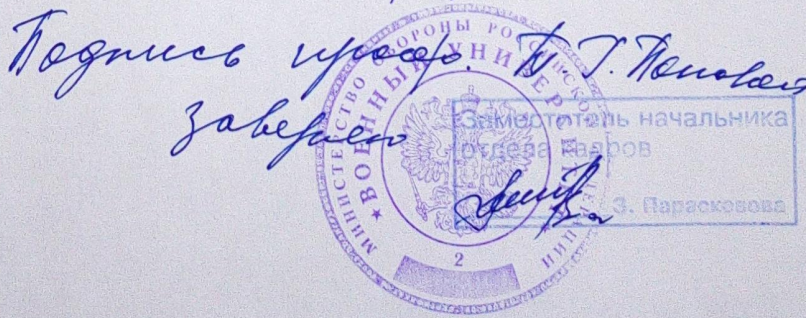 Подпись проф. Т. Г. Поповой
заверяю
МИНИСТЕРСТВО ОБОРОНЫ РОССИЙСКОЙ ФЕДЕРАЦИИ
★ ВОЕННЫЙ УНИВЕРСИТЕТ
2
Заместитель начальника
отдела кадров
З. Парасковова